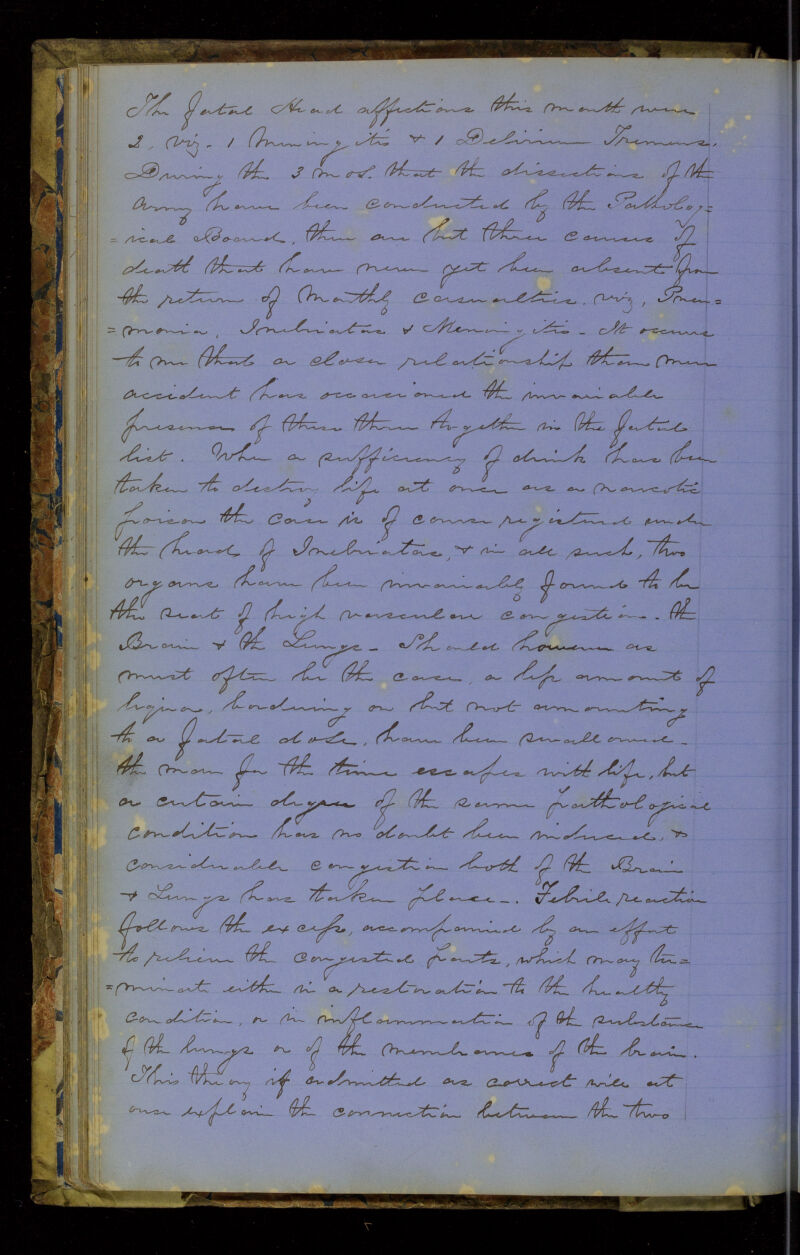 The fatal Head affections this month were
2, viz. 1 Meningitis & 1 Delirium Tremens.
During the 3 mos. that the dissections of the
Army have been conducted by the Patholog=
=ical Board, there are but three causes of
death that have never yet been absent from
the return of Monthly casualties, viz, Pneu=
=monia, Inebriatas & Meningitis - It occurs
to me that a closer relationship than mere
accident has occasioned the invariable
presence of these three together in the fatal
list. When a sufficiency of drink has been
taken to destroy life at once as a narcotic
poison the case is of course registered under
the head of Inebriatas, & in all such, two
organs have been invariably found to be
the seat of high vascular congestion - the
Brain & the Lungs - Should however as
must often be the case, a less amount of
liquor, bordering on but not amounting
to a fatal dose, have been swallowed -
the man for the time escapes with life, but
a certain degree of the same pathological
condition has no doubt been induced, &
considerable congestion both of the Brain
& Lungs has taken place -. Febrile reaction
follows the excess, accompanied by an effort
to relieve the congested parts, which may ter=
=minate either in a restoration to the healthy
condition, or in inflammation of the substance
of the lungs or of the membranes of the brain.
This theory if admitted as correct will at
once explain the connection between the two